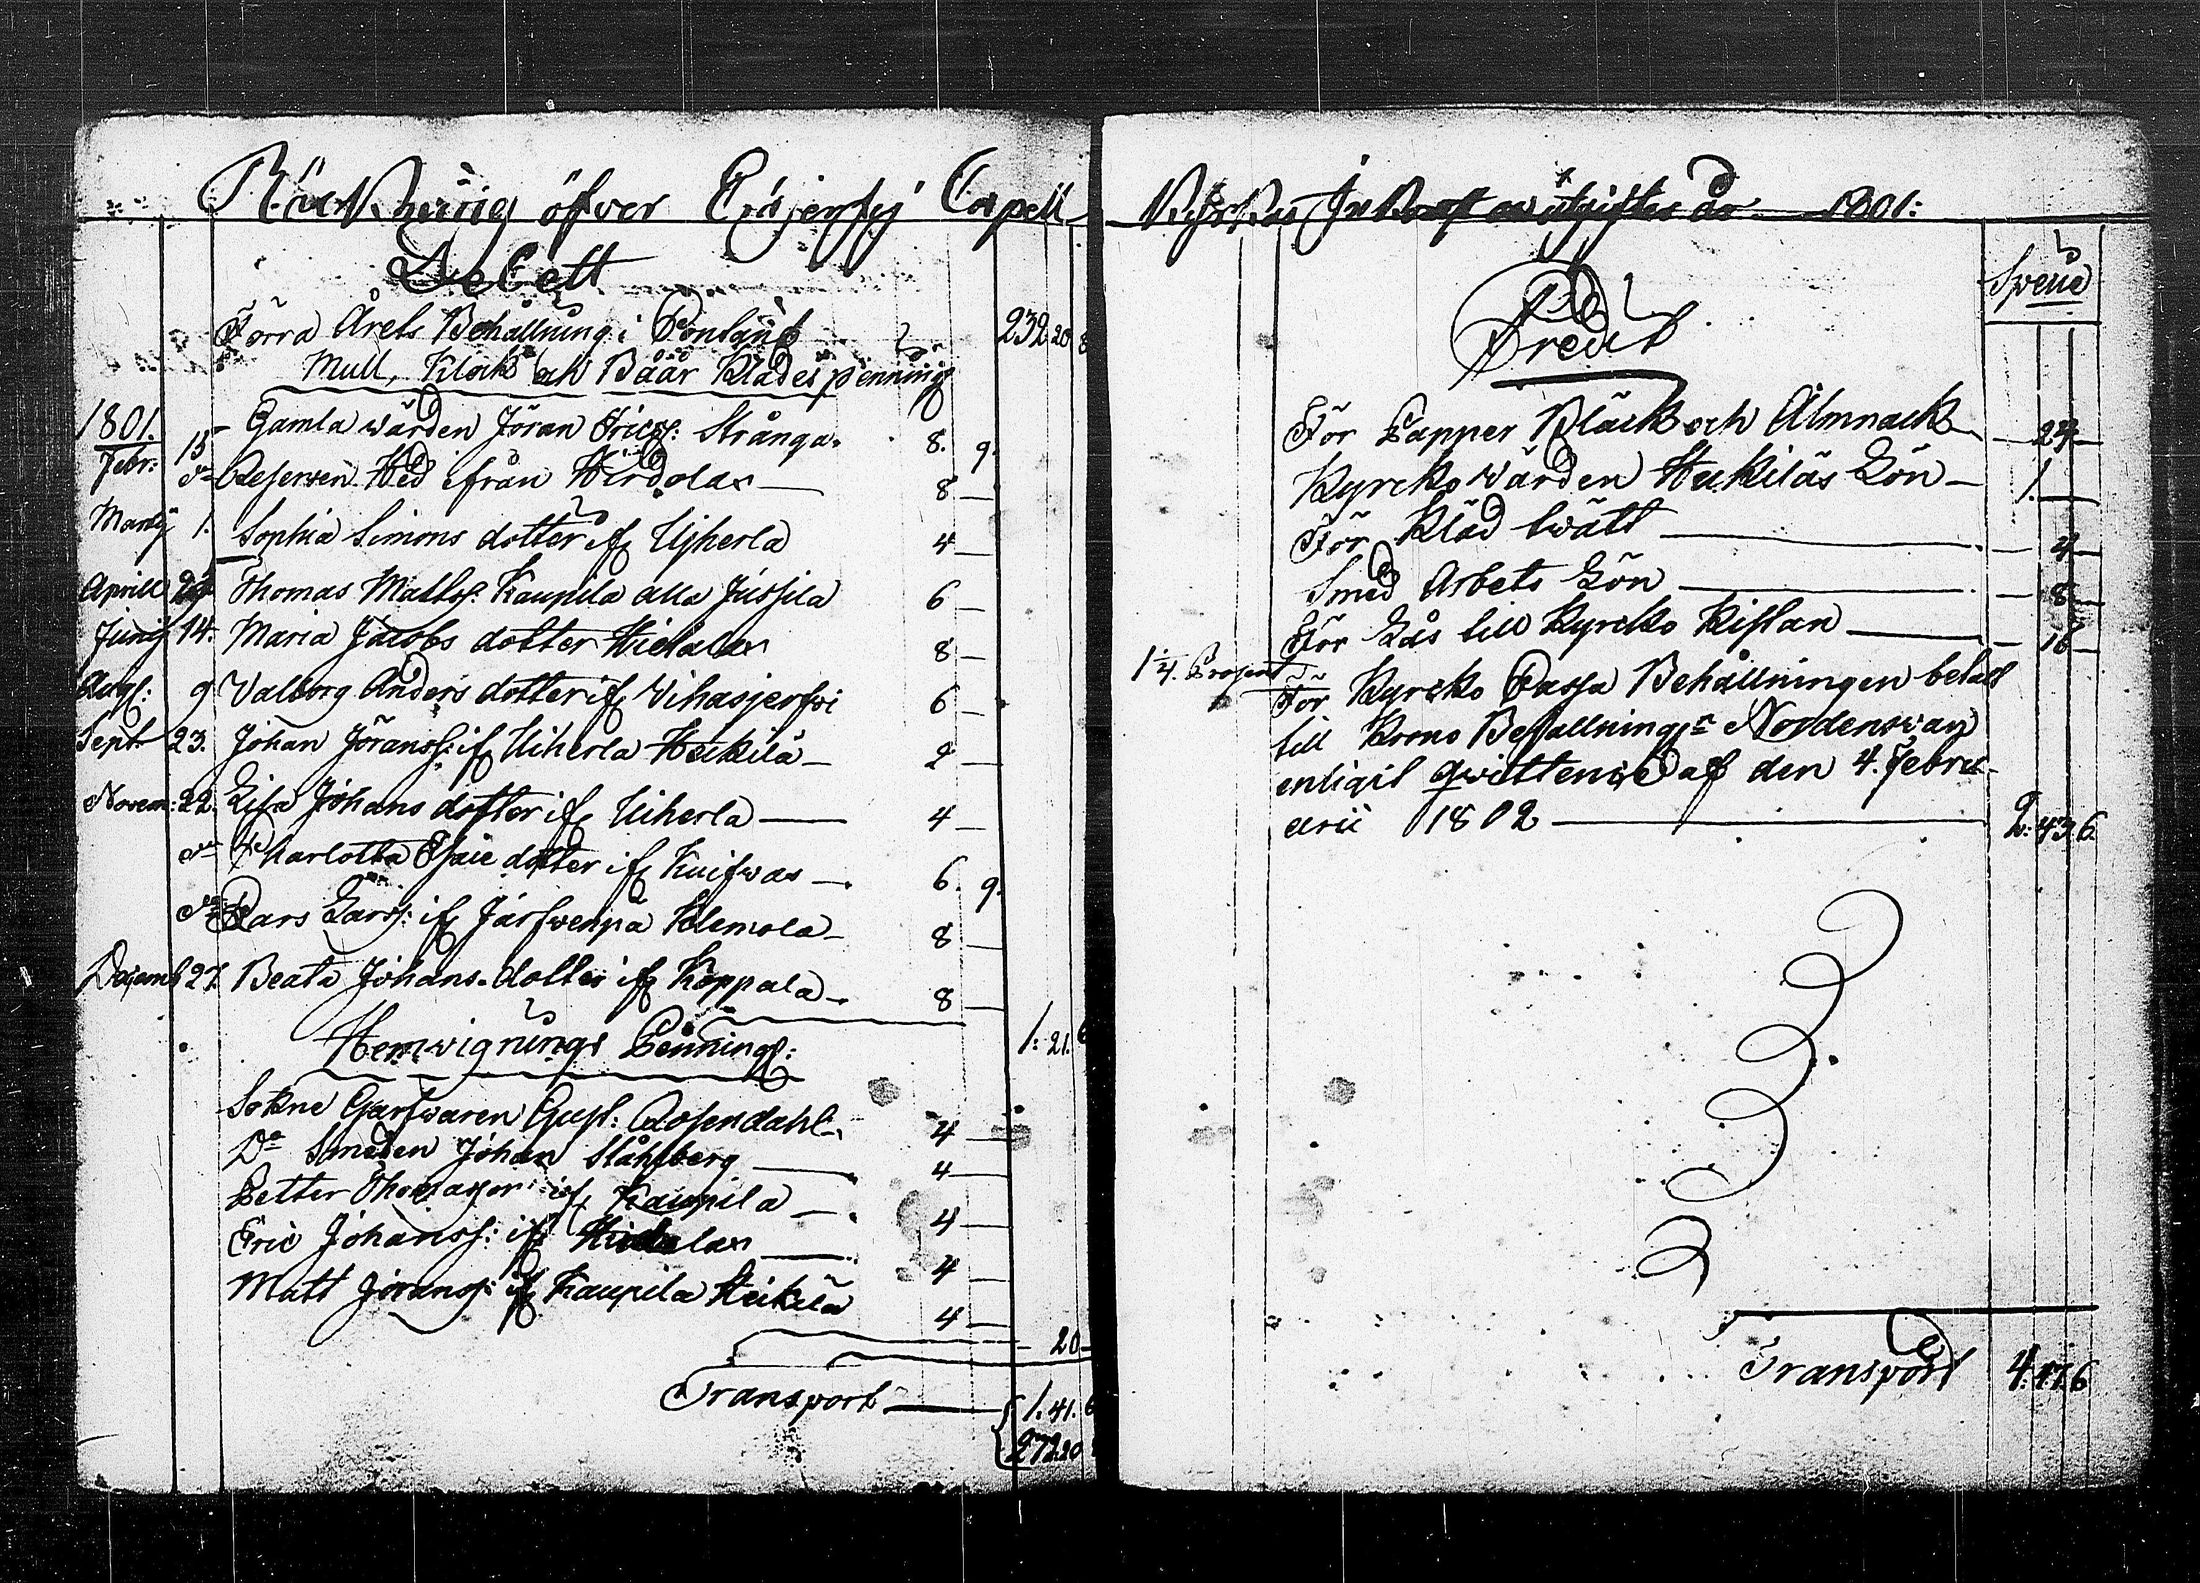 Räkning öfver Capell
Debett
Förra Årets Behållning i 232. 20. 8
Mull, Klock och Båår Klädes penning
1801.
Febr: 15 Gamla wärden Jöran Ericss: Strånga. 8. 9.
Do Reserven Hed ifrån Hirdolax — 8 —
Martij 1. Sophia Simons dotter if Ujherla 4 —
Aprill Thomas Matts: Kaupila alla Jussila 6 —
Junij 14. Maria Jacobs dotter Hietalax 8 —
Augs: 9 Valborg Anders dotter if Vihasjerfvi 6 —
Sept. 23. Johan Jöranss: if Uiherla Heikilä — 2 —
Novem: 22. Lisa Johans dotter if Uiherla — 4 —
Do Charlotta Esaie dotter if Kuifwas —. 6. 9.
Do Lars Larss: if Järfwenpä Klemola — 8 —
Decemb 27. Beata Johans dotter if Koppala —. 8 —
1: 21. 6
Hemvignings Penning:
Sokne Garfwaren Gust: Rosendahl —. 4 —
Do Smeden Johan Ståhlberg — 4 —
Petter Thomasson if Kaupila —. 4 —
Eric Johanss: if Hietalax —. 4 —
Matt Jöranss: if Kaupila Heikilä 4 —
— 20 —
Transport — 1. 41. 6
Kyrkas Inkomst och utgifter år — 1801:
Credit
För Papper Bläck och Almnack — 24 —
Kyrcko Wärden Heikiläs Lön — 1. —
För Kläd twätt — 4 —
Smed Arbets Lön — 8 —
För Lås till Kyrcko Kistan — 16 —
1 1/4. Prosent
För Kyrcko Cassa Behållningen betalt
till Krono Befallningsn Nordenswan
enligit qwittence af den 4. Febru-
arii 1802 — 2. 43. 6.
Transport 4. 47. 6